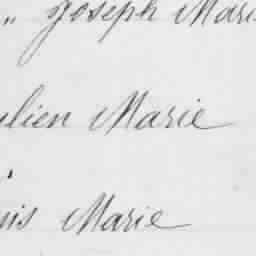 „ Joseph Mari
ulien Marie
nis Marie